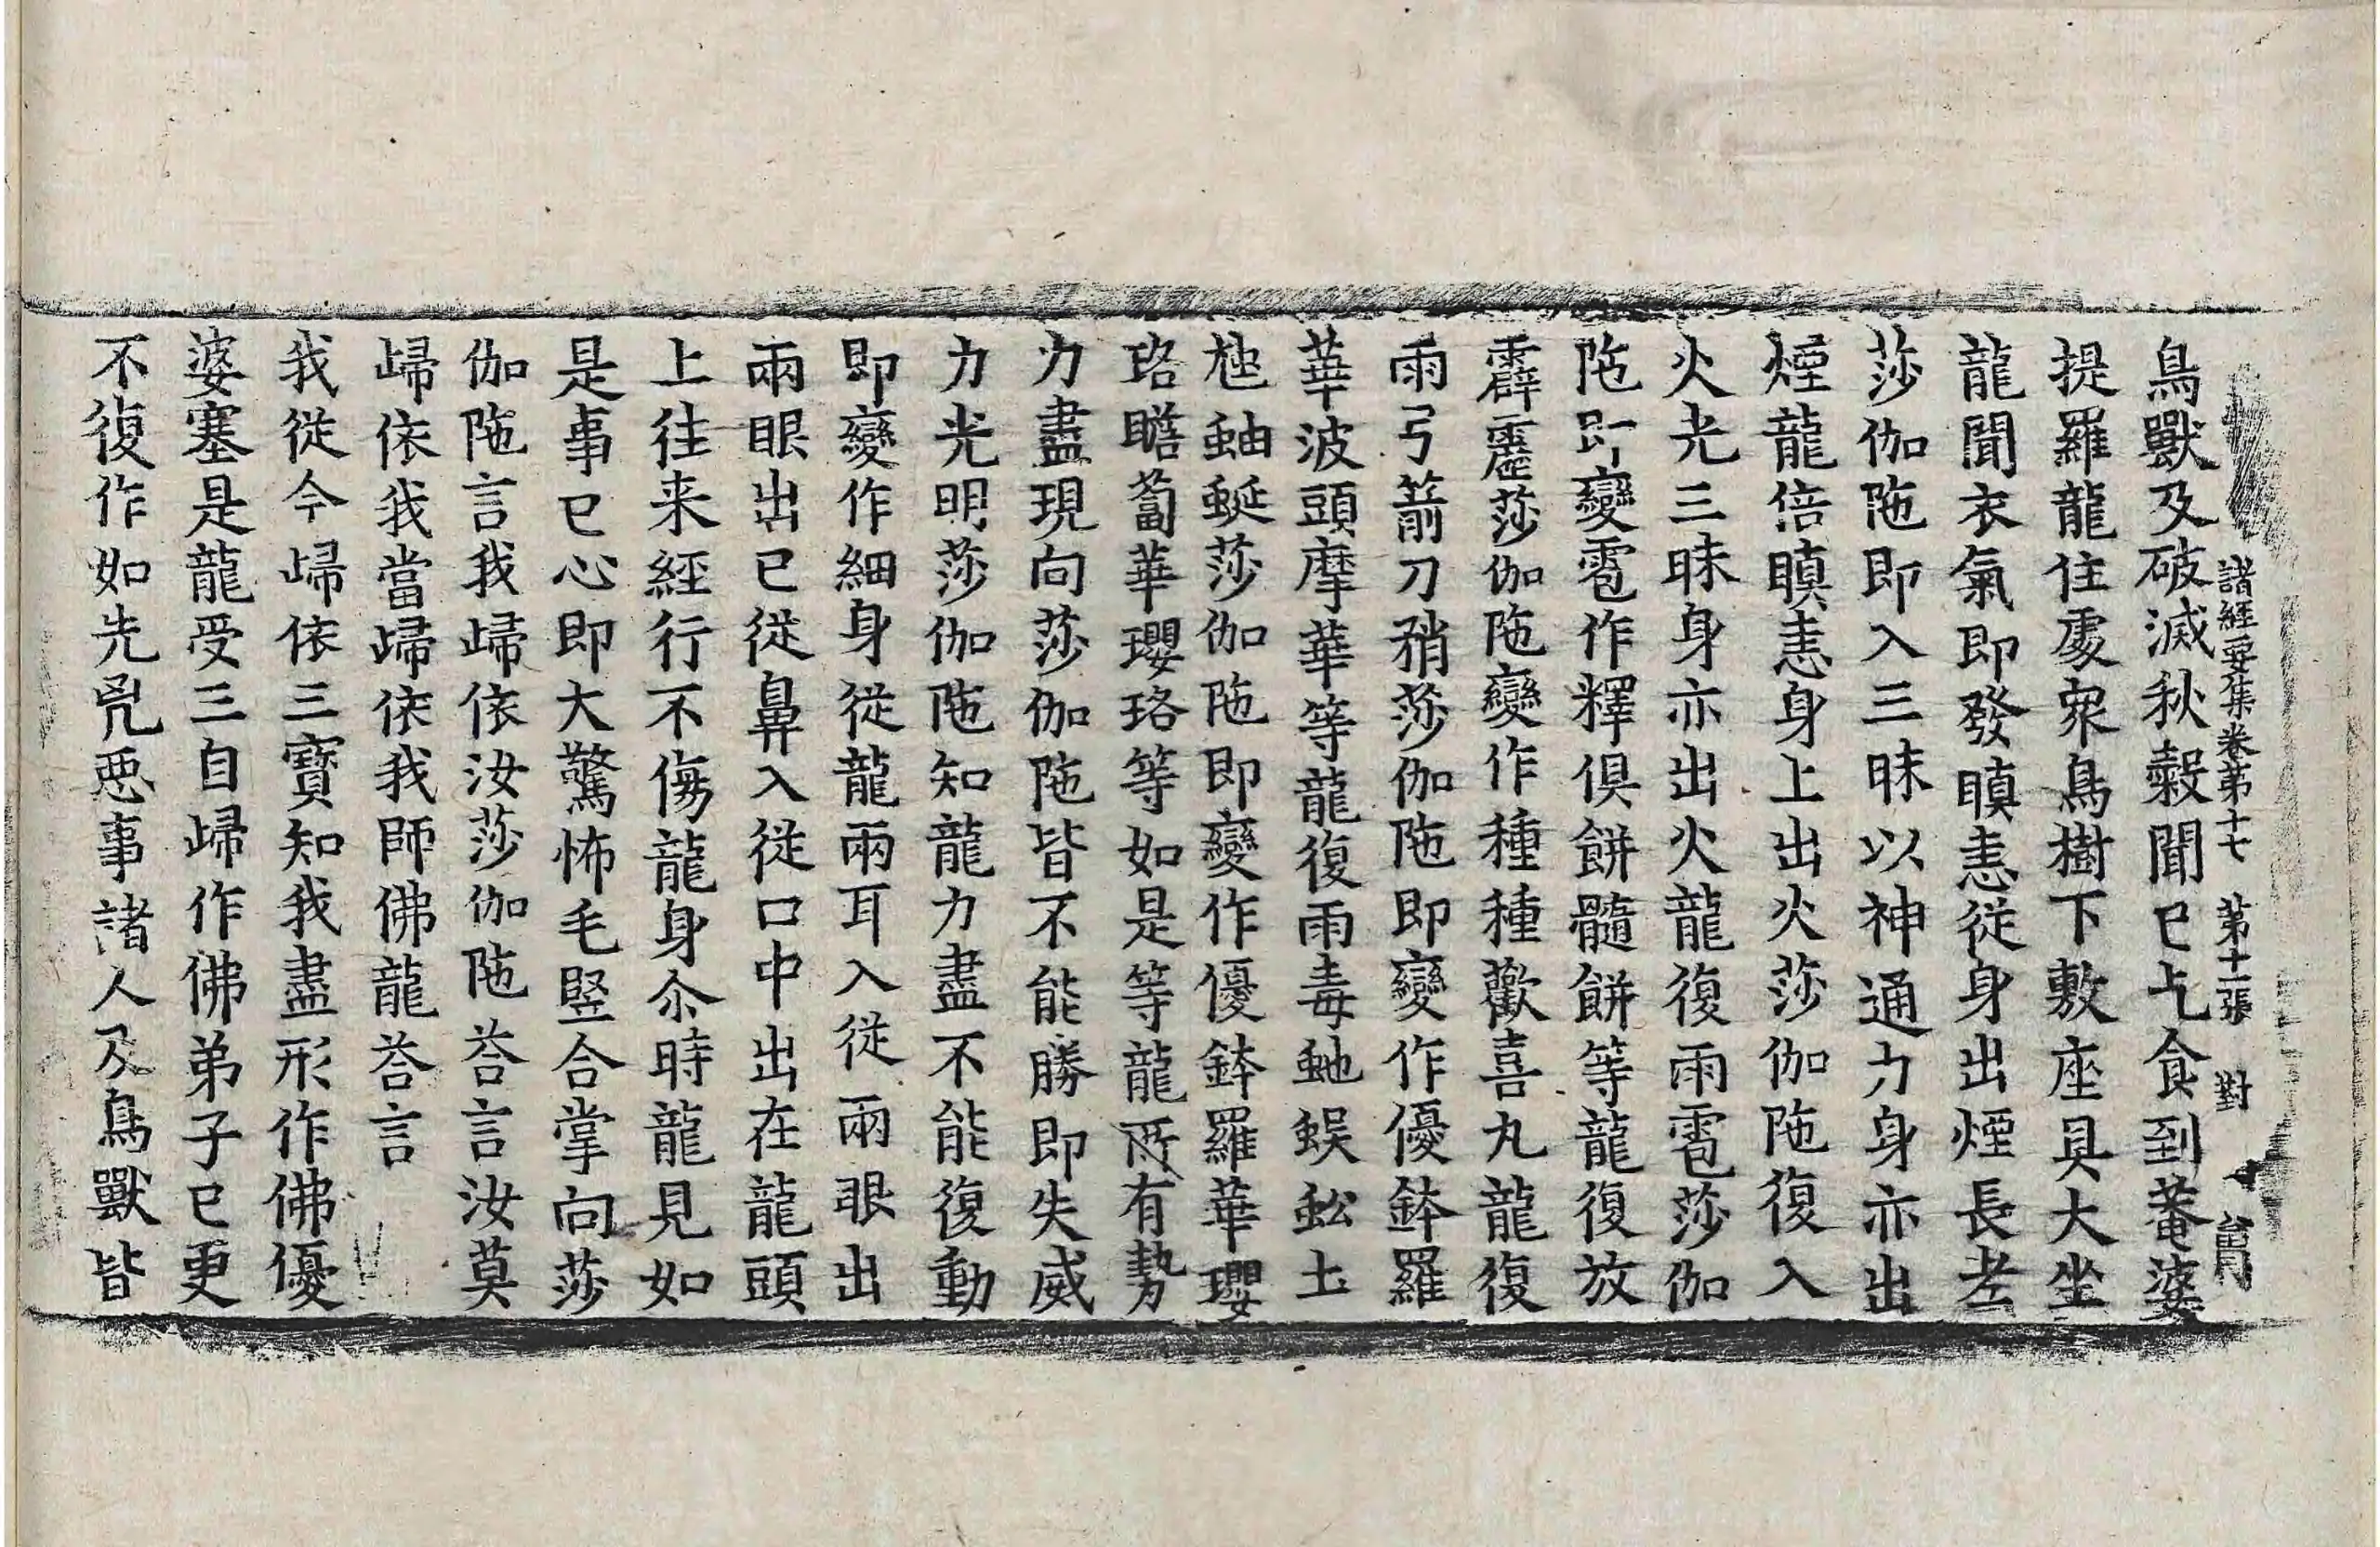 諸經要集卷第十七 第十二張 對
鳥獸及破滅秋穀聞已乞食到菴婆
提羅龍住處衆鳥樹下敷座具大坐
龍聞衣氣即發瞋恚從身出煙長老
莎伽陁即入三昧以神通力身亦出
煙龍倍瞋恚身上出火莎伽陁復入
火光三昧身亦出火龍復雨雹莎伽
陁即變雹作釋俱餅髓餅等龍復放
霹靂莎伽陁變作種種歡喜丸龍復
雨弓箭刀矟莎伽陁即變作優鉢羅
華波頭摩華等龍復雨毒虵蜈蚣土
虺蚰蜒莎伽陁即變作優鉢羅華瓔
珞瞻蔔華瓔珞等如是等龍所有勢
力盡現向莎伽陁皆不能勝即失威
力光明莎伽陁知龍力盡不能復動
即變作細身從龍兩耳入從兩眼出
兩眼出已從鼻入從口中出在龍頭
上往来經行不傷龍身尒時龍見如
是事已心即大驚怖毛竪合掌向莎
伽陁言我歸依汝莎伽陁荅言汝莫
歸依我當歸依我師佛龍荅言
我從今歸依三寶知我盡形作佛優
婆塞是龍受三自歸作佛弟子已更
不復作如先兇惡事諸人及鳥獸皆